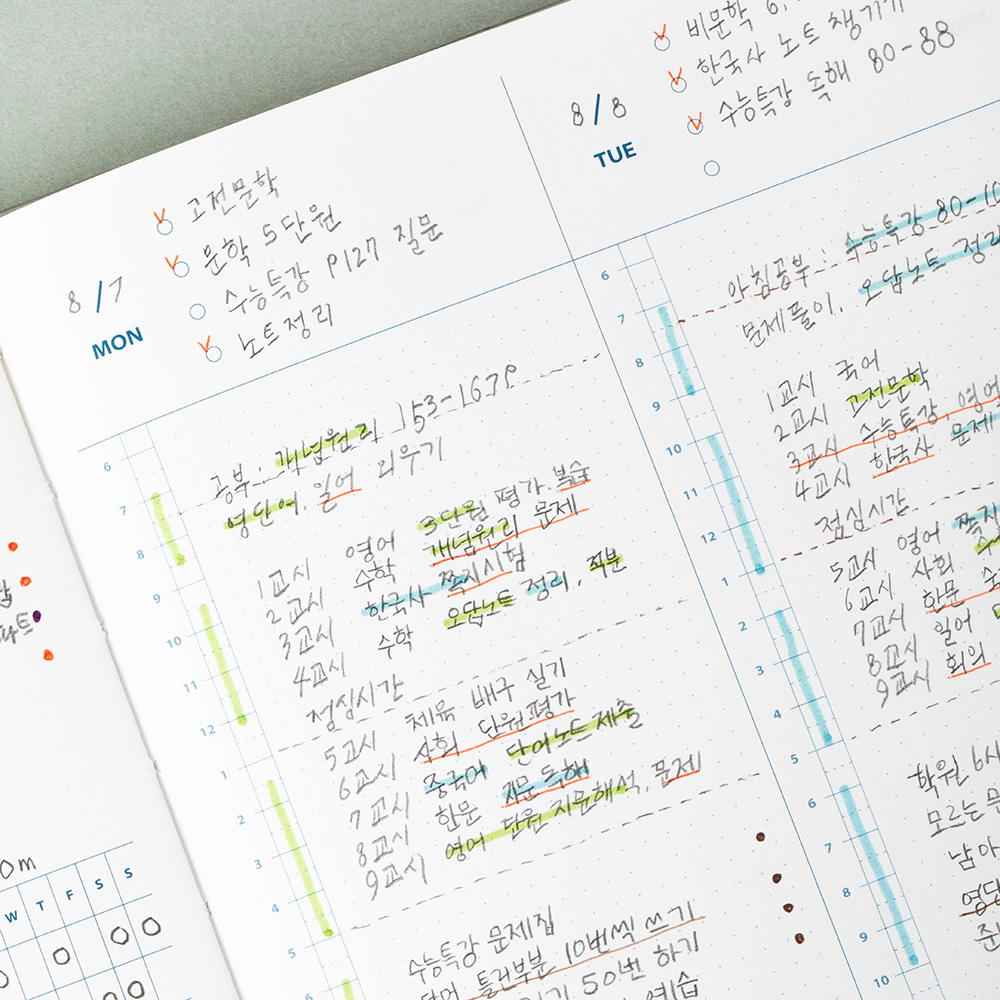 8/7
MON
고전문학
문학 5단원
수능특강 P127 질문
노트정리
6
7
8
9
10
11
12
1
2
3
4
5
6
공부: 개념원리 153-167P
영단어, 일어 외우기
1교시 영어 3단원 평가 복습
2교시 수학 개념원리 문제
3교시 한국사 쪽지시험
4교시 수학 오답노트 정리, 적분
점심시간
5교시 체육 배구 실기
6교시 사회 단원평가
7교시 중국어 단어노트 제출
8교시 한문 지문 독해
9교시 영어 단원 지문해석, 문제
수능특강 문제집
단어 틀린부분 10번씩 쓰기
50번 하기
예습
8/8
TUE
비문학
한국사 노트 챙기기
수능특강 독해 80-88
6
7
8
9
10
11
12
1
2
3
4
5
6
7
8
9
10
아침공부: 수능특강 80-10
문제풀이, 오답노트 정리
1교시 국어
2교시 고전문학
3교시 수능특강, 영어
4교시 한국사 문제
점심시간
5교시 영어 쪽지
6교시 사회
7교시 한문
8교시 일어
9교시 회의
학원 6시
모르는
남아
영단
준
0m
W T F S S